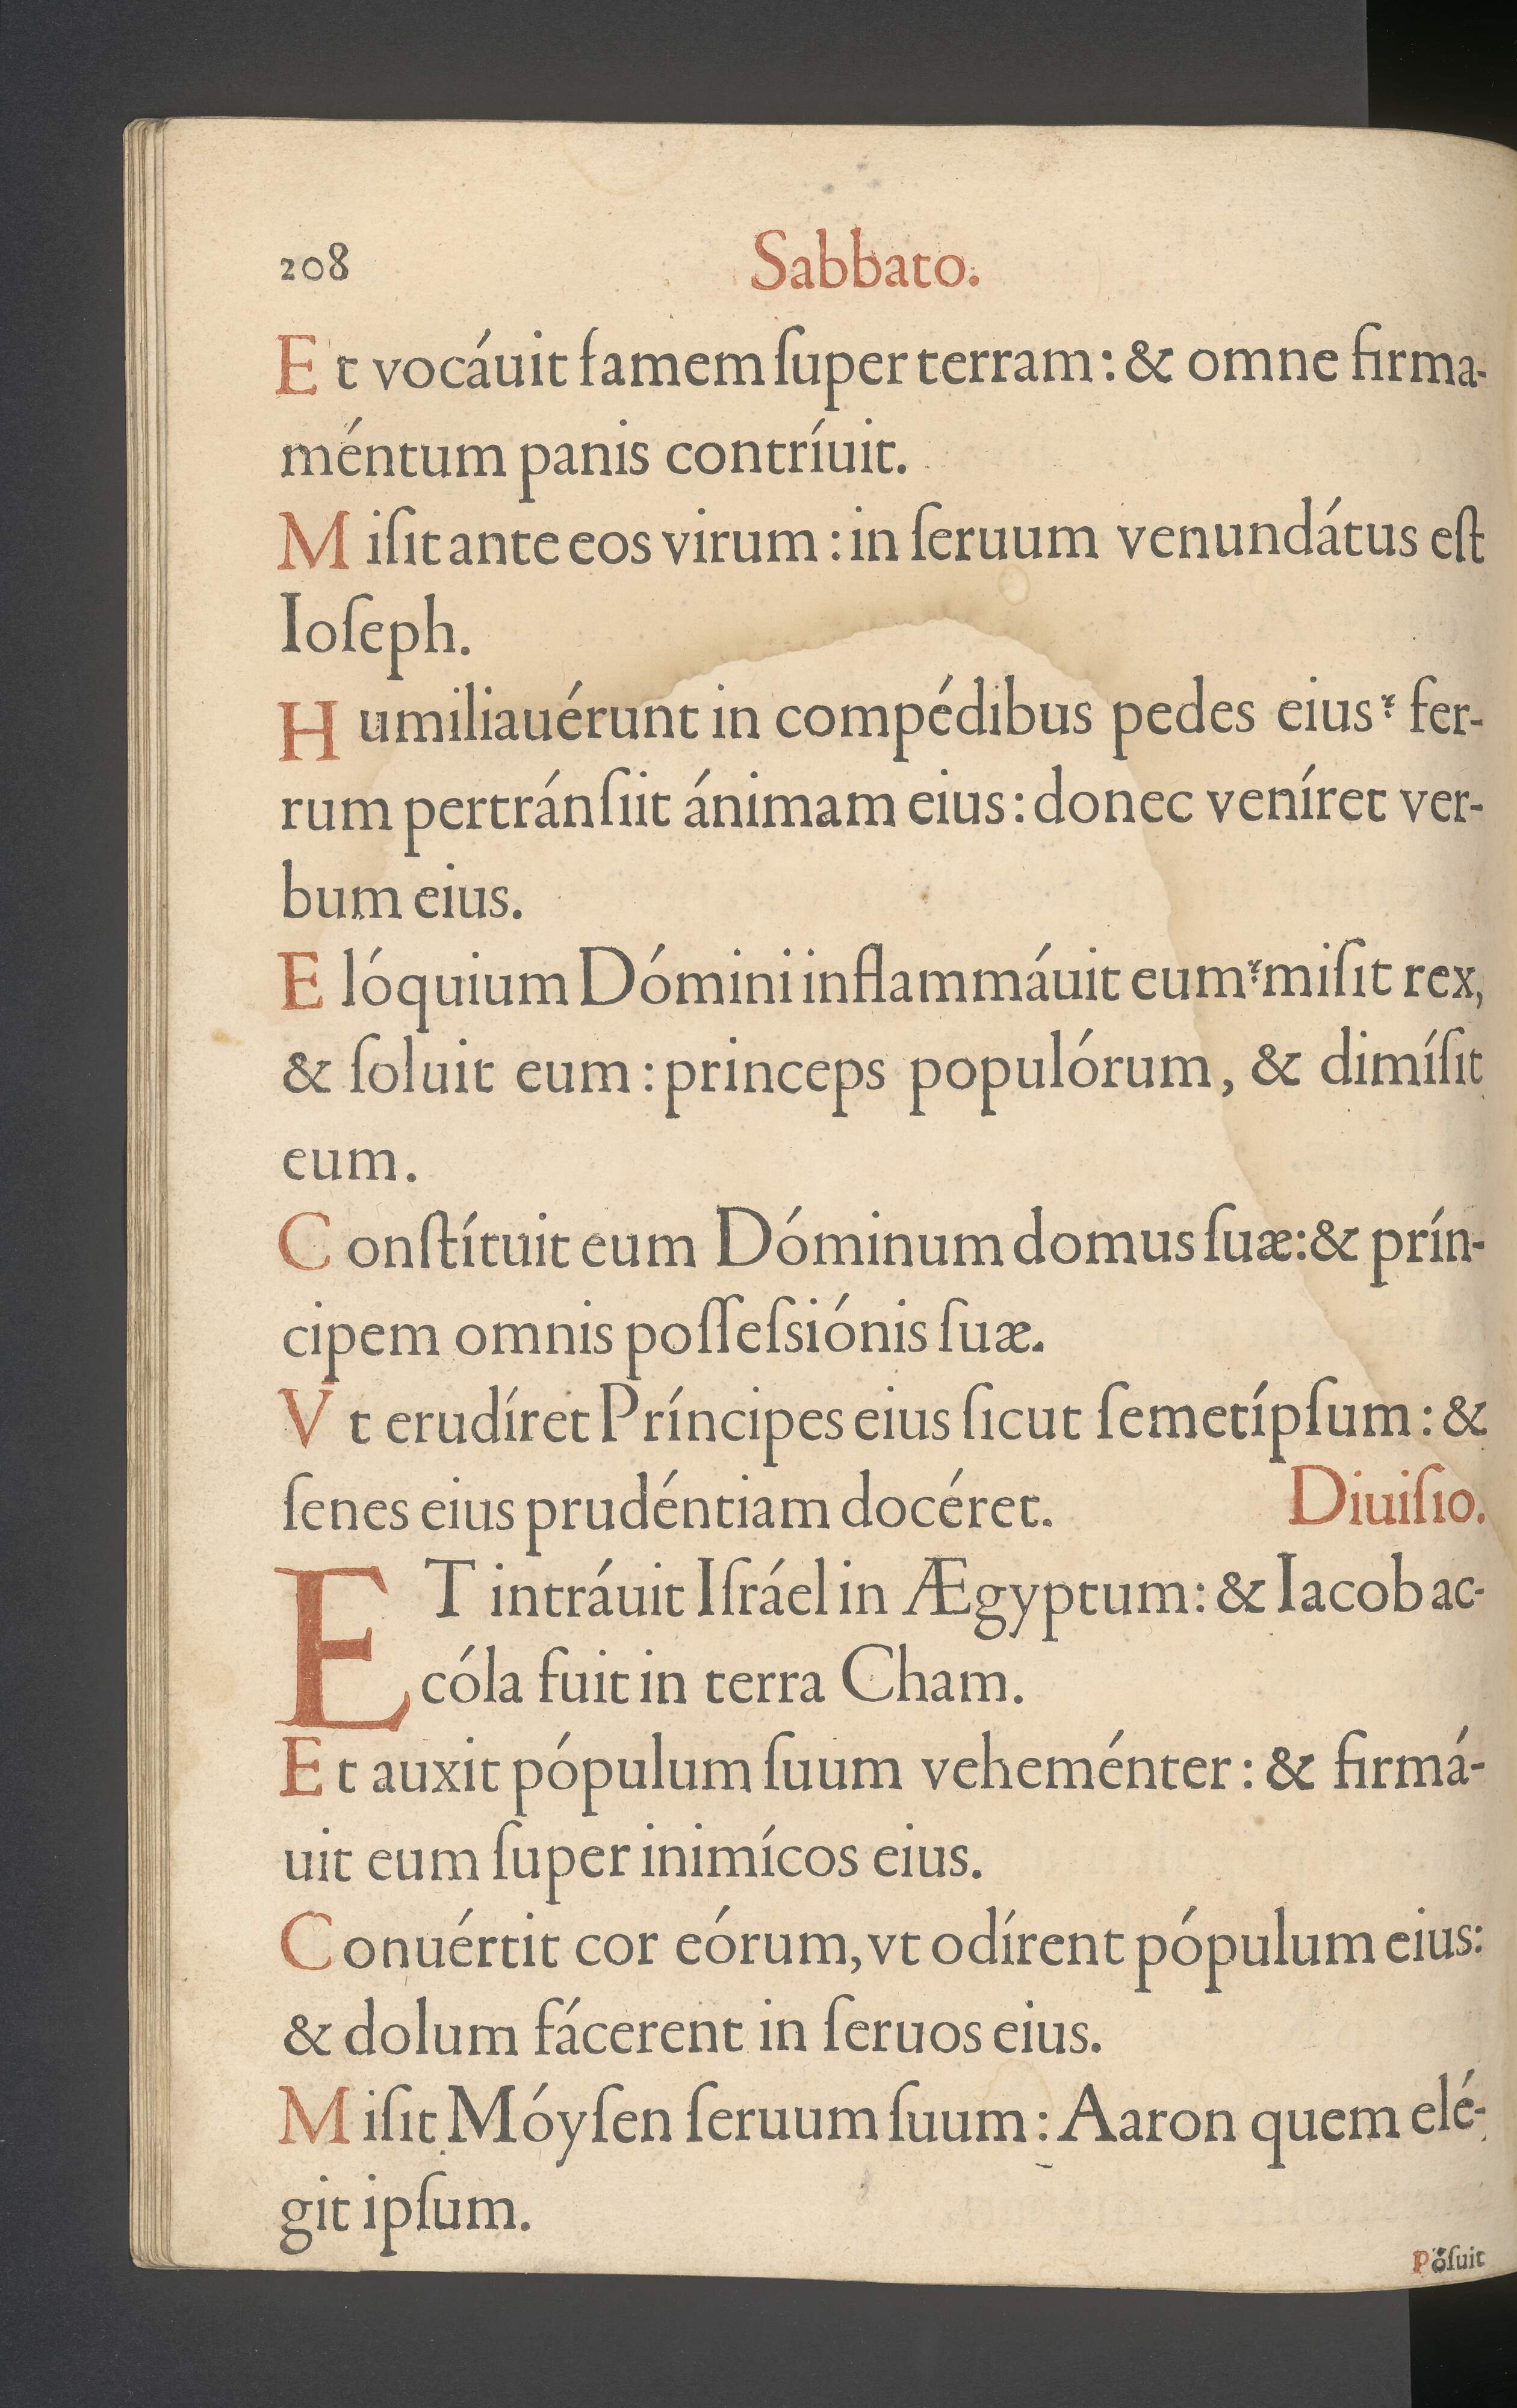 208
Sabbato.
Et vocáuit famem ſuper terram: & omne firma-
méntum panis contríuit.
Miſit ante eos virum: in ſeruum venundátus eſt
Ioſeph.
Humiliauérunt in compédibus pedes eius* fer-
rum pertránſiit ánimam eius: donec veníret ver-
bum eius.
Elóquium Dómini inflammáuit eum* miſit rex,
& ſoluit eum: princeps populórum, & dimíſit
eum.
Conſtítuit eum Dóminum domus ſuæ: & prín-
cipem omnis poſſeſsiónis ſuæ.
Vt erudíret Príncipes eius ſicut ſemetípſum: &
ſenes eius prudéntiam docéret. Diuiſio.
ET intráuit Iſráel in Ægyptum: & Iacob ac-
cóla fuit in terra Cham.
Et auxit pópulum ſuum veheménter: & firmá-
uit eum ſuper inimícos eius.
Conuértit cor eórum, vt odírent pópulum eius:
& dolum fácerent in ſeruos eius.
Miſit Móyſen ſeruum ſuum: Aaron quem elé-
git ipſum.
Póſuit